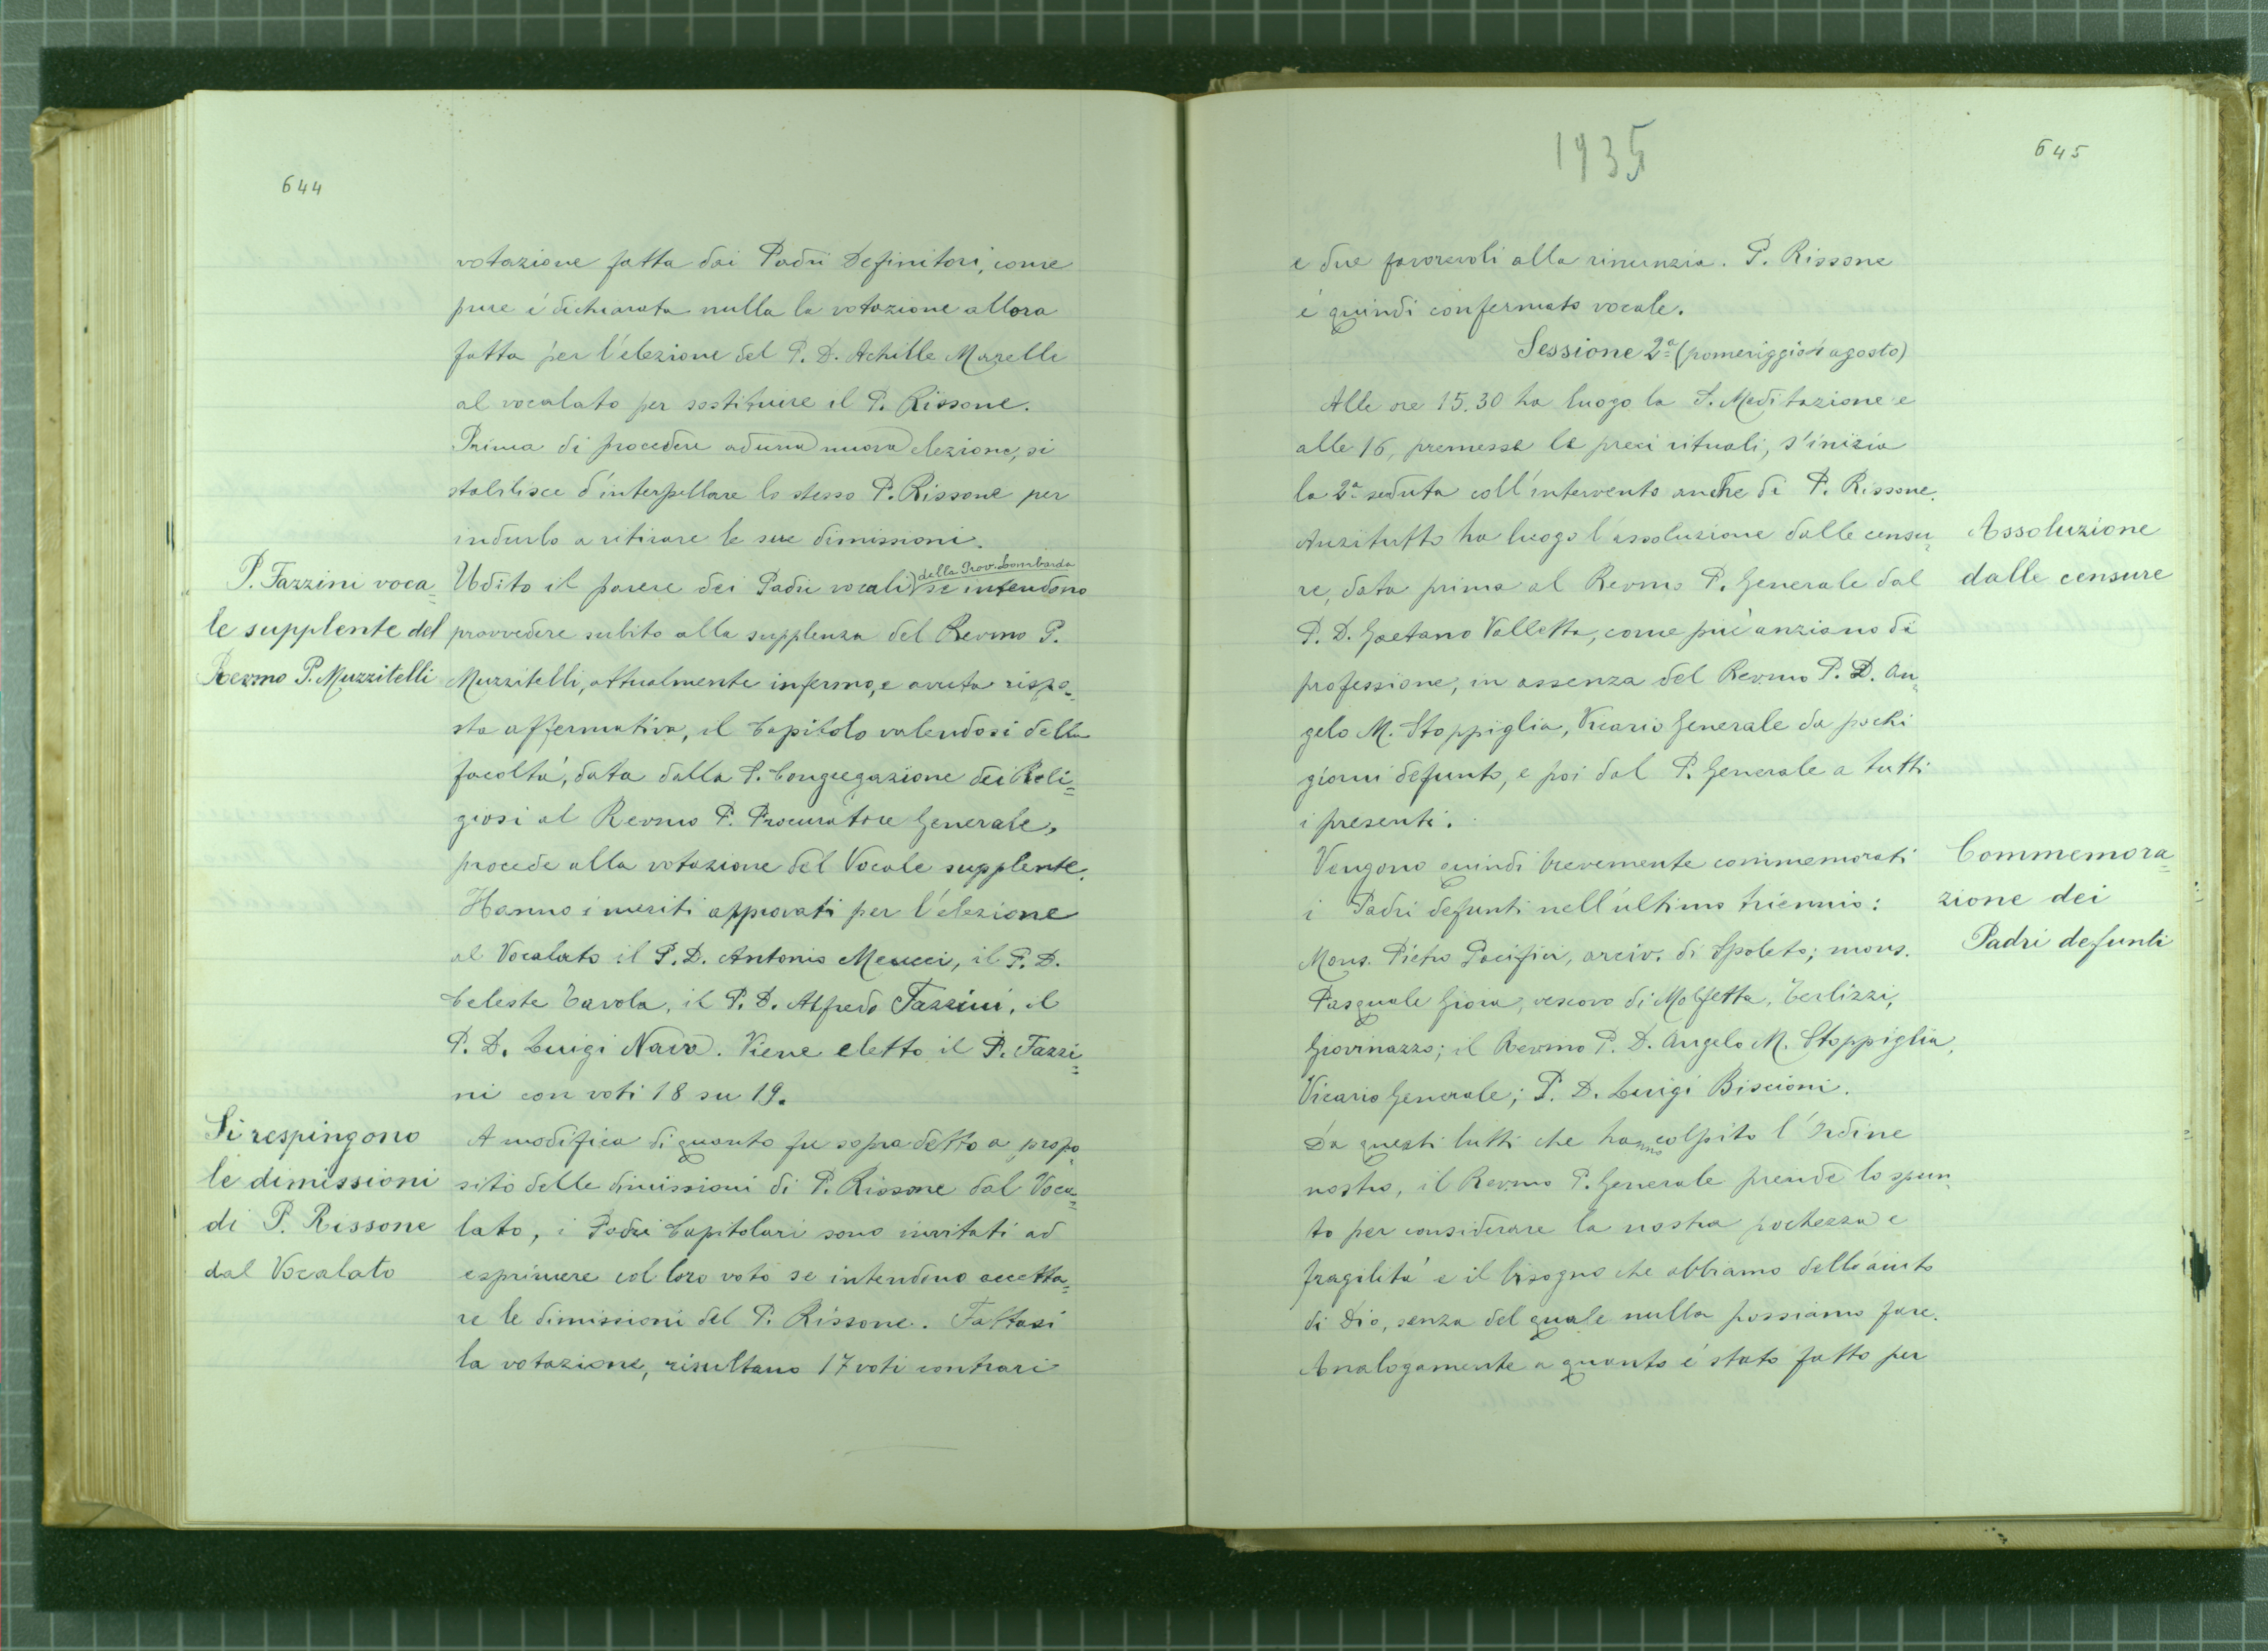 644
votazione fatta dai Padri Definitori, come
pure é dichiarata nulla la votazione allora
fatta per l'elezione del P. D. Achille Marelli
al vocalato per sostituire il P. Rissone.
Prima di procedere ad una nuova elezione, si
stabilisce d'interpellare lo stesso P. Rissone per
indurlo a ritirare le sue dimissioni.
P. Fazzini voca=
le supplente del
Revmo P. Muzzitelli
della Prov. Lombarda
Udito il parere dei Padri vocali se intendono
provvedere subito alla supplenza del Revmo P.
Muzzitelli, attualmente infermo, e avuta rispo=
sta affermativa, il Capitolo valendosi della
facoltá, data dalla S. Congregazione dei Reli=
giosi al Revmo P. Procuratore Generale,
procede alla votazione del Vocale supplente.
Hanno i meriti approvati per l'elezione
al Vocalato il P. D. Antonio Meucci, il P. D.
Celeste Cavola, il P. D. Alfredo Fazzini, il
P. D. Luigi Nava. Viene eletto il P. Fazzi=
ni con voti 18 su 19.
Si respingono
le dimissioni
di P. Rissone
dal Vocalato
A modifica di quanto fu sopra detto a propo=
sito delle dimissioni di P. Rissone dal Voca=
lato, i Padri Capitolari sono invitati ad
esprimere col loro voto se intendono accetta=
re le dimissioni del P. Rissone. Fattasi
la votazione, risultano 17 voti contrari
1935
645
e due favorevoli alla rinunzia. P. Rissone
é quindi confermato vocale.
Sessione 2ª (pomeriggio 1 agosto)
Alle ore 15.30 ha luogo la S. Meditazione e
alle 16, premesse le preci rituali, s'inizia
la 2ª seduta coll'intervento anche di P. Rissone.
Anzitutto ha luogo l'assoluzione dalle censu=
re, data prima al Revmo P. Generale dal
P. D. Gaetano Valletta, come piú anziano di
professione, in assenza del Revmo P. D. An=
gelo M. Stoppiglia, Vicario Generale da pochi
giorni defunto, e poi dal P. Generale a tutti
i presenti.
Assoluzione
dalle censure
Vengono quindi brevemente commemorati
i Padri defunti nell'ultimo triennio:
Mons. Pietro Pacifici, arciv. di Spoleto; mons.
Pasquale Gioia, vescovo di Molfetta, Terlizzi,
Giovinazzo; il Revmo P. D. Angelo M. Stoppiglia,
Vicario Generale; P. D. Luigi Biscioni.
Commemora=
zione dei
Padri defunti
Da questi lutti che hanno colpito l'Ordine
nostro, il Revmo P. Generale prende lo spun=
to per considerare la nostra pochezza e
fragilitá e il bisogno che abbiamo dell'aiuto
di Dio, senza del quale nulla possiamo fare.
Analogamente a quanto é stato fatto per